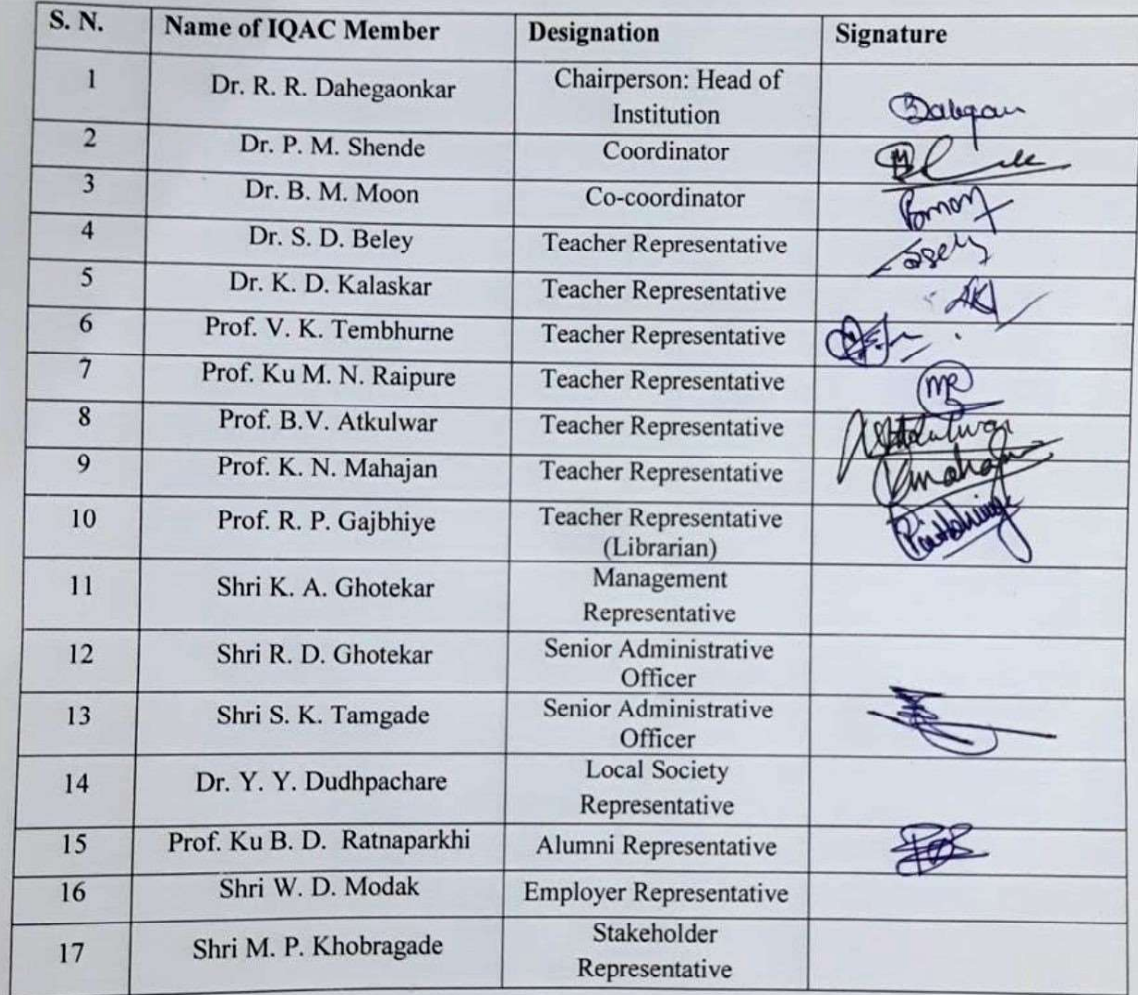 S. N. Name of IQAC Member Designation Signature
1 Dr. R. R. Dahegaonkar Chairperson: Head of
Institution
2 Dr. P. M. Shende Coordinator
3 Dr. B. M. Moon Co-coordinator
4 Dr. S. D. Beley Teacher Representative
5 Dr. K. D. Kalaskar Teacher Representative
6 Prof. V. K. Tembhurne Teacher Representative
7 Prof. Ku M. N. Raipure Teacher Representative
8 Prof. B.V. Atkulwar Teacher Representative
9 Prof. K. N. Mahajan Teacher Representative
10 Prof. R. P. Gajbhiye Teacher Representative
(Librarian)
11 Shri K. A. Ghotekar Management
Representative
12 Shri R. D. Ghotekar Senior Administrative
Officer
13 Shri S. K. Tamgade Senior Administrative
Officer
14 Dr. Y. Y. Dudhpachare Local Society
Representative
15 Prof. Ku B. D. Ratnaparkhi Alumni Representative
16 Shri W. D. Modak Employer Representative
17 Shri M. P. Khobragade Stakeholder
Representative